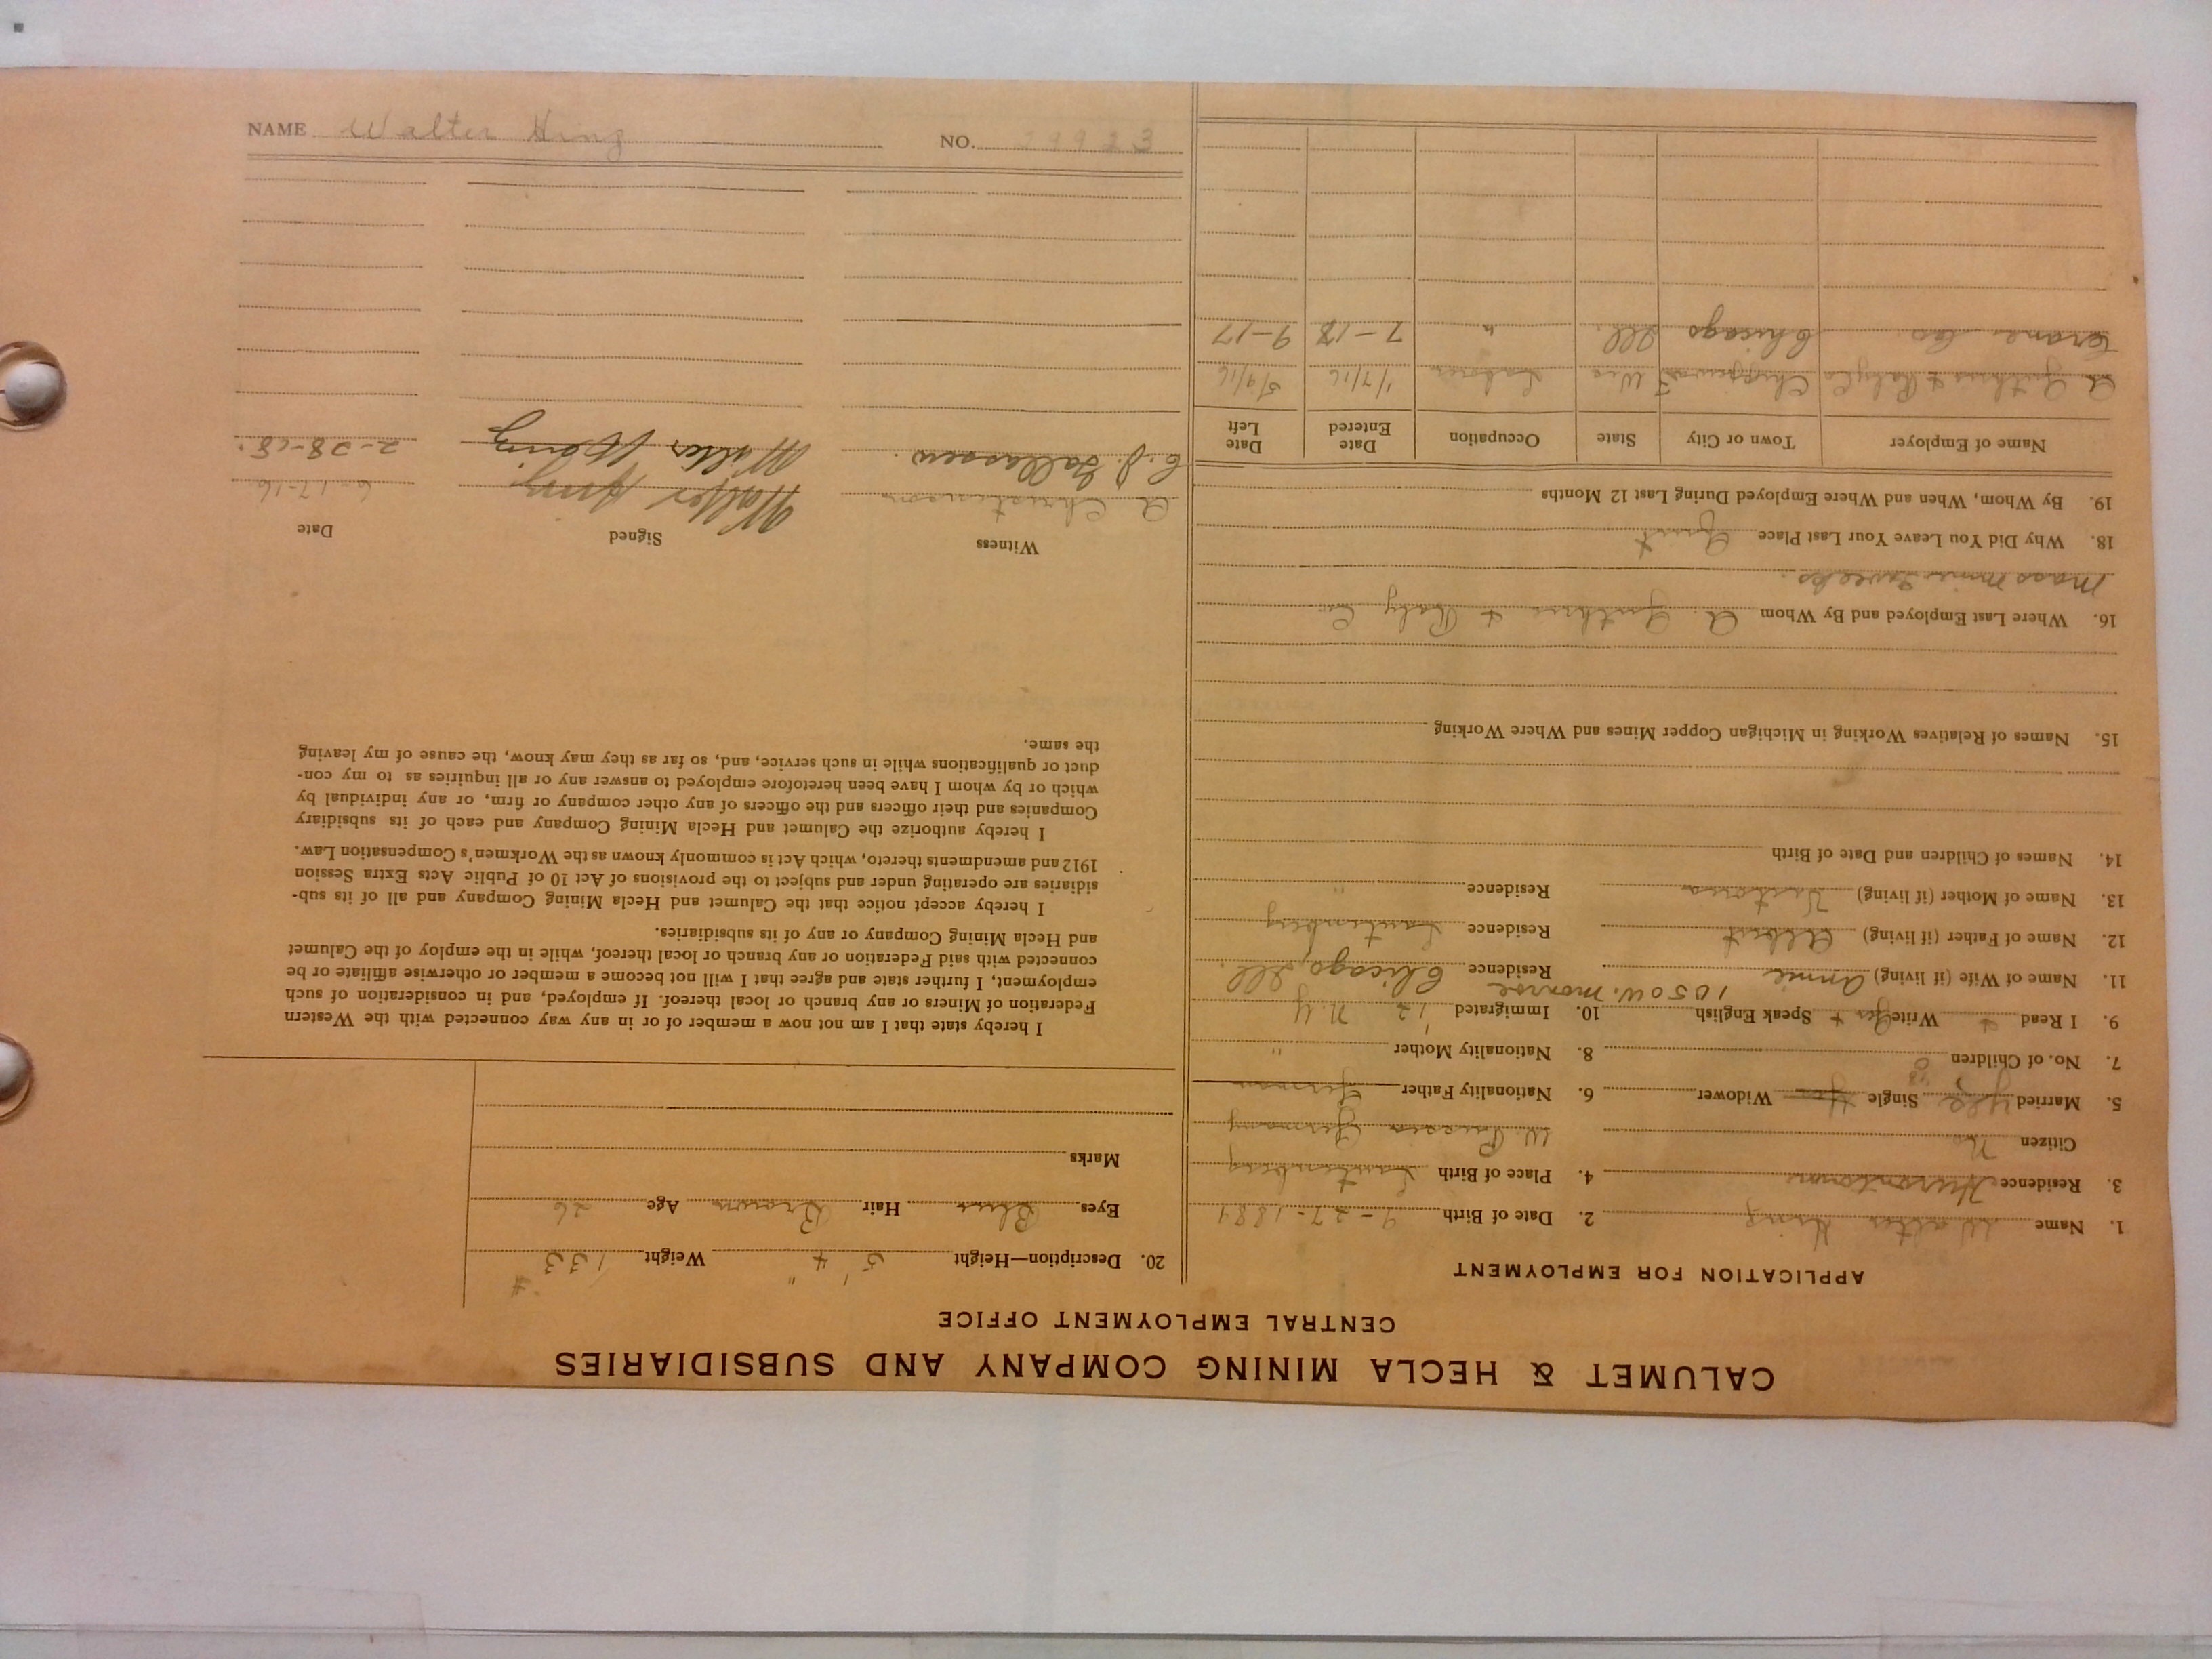 CALUMET & HECLA MINING COMPANY AND SUBSIDIARIES
CENTRAL EMPLOYMENT OFFICE
APPLICATION FOR EMPLOYMENT
1. Name Walter 2. Date of Birth 9-27-1889
3. Residence 4. Place of Birth Lautenberg
Citizen No W. Prussia Germany
5. Married Yes Single Widower 6. Nationality Father German
7. No. of Children 0 8. Nationality Mother "
9. I Read + Write Speak English 10. Immigrated N.Y
1050 W. Monroe
11. Name of Wife (if living) Annie Residence Chicago, Ill.
12. Name of Father (if living) Albert Residence Lautenberg
13. Name of Mother (if living) Residence "
14. Names of Children and Date of Birth
15. Names of Relatives Working in Michigan Copper Mines and Where Working
16. Where Last Employed and By Whom A. Guthrie + Co
Mass Mine
18. Why Did You Leave Your Last Place Quit
19. By Whom, When and Where Employed During Last 12 Months
Name of Employer Town or City State Occupation Date Entered Date Left
A Guthrie + Chippewa F Wis Laborer 1/7/16 5/9/16
Crane Co. Chicago Ill. " 7-18 9-17
20. Description—Height 5' 4" Weight 133 #
Eyes Blue Hair Brown Age 26
Marks
I hereby state that I am not now a member of or in any way connected with the Western
Federation of Miners or any branch or local thereof. If employed, and in consideration of such
employment, I further state and agree that I will not become a member or otherwise affiliate or be
connected with said Federation or any branch or local thereof, while in the employ of the Calumet
and Hecla Mining Company or any of its subsidiaries.
I hereby accept notice that the Calumet and Hecla Mining Company and all of its sub-
sidiaries are operating under and subject to the provisions of Act 10 of Public Acts Extra Session
1912 and amendments thereto, which Act is commonly known as the Workmen's Compensation Law.
I hereby authorize the Calumet and Hecla Mining Company and each of its subsidiary
Companies and their officers and the officers of any other company or firm, or any individual by
which or by whom I have been heretofore employed to answer any or all inquiries as to my con-
duct or qualifications while in such service, and, so far as they may know, the cause of my leaving
the same.
Witness Signed Date
A Christinson Walter 6-17-16
C. J. Walter 2-28-18.
NAME Walter NO. 29923